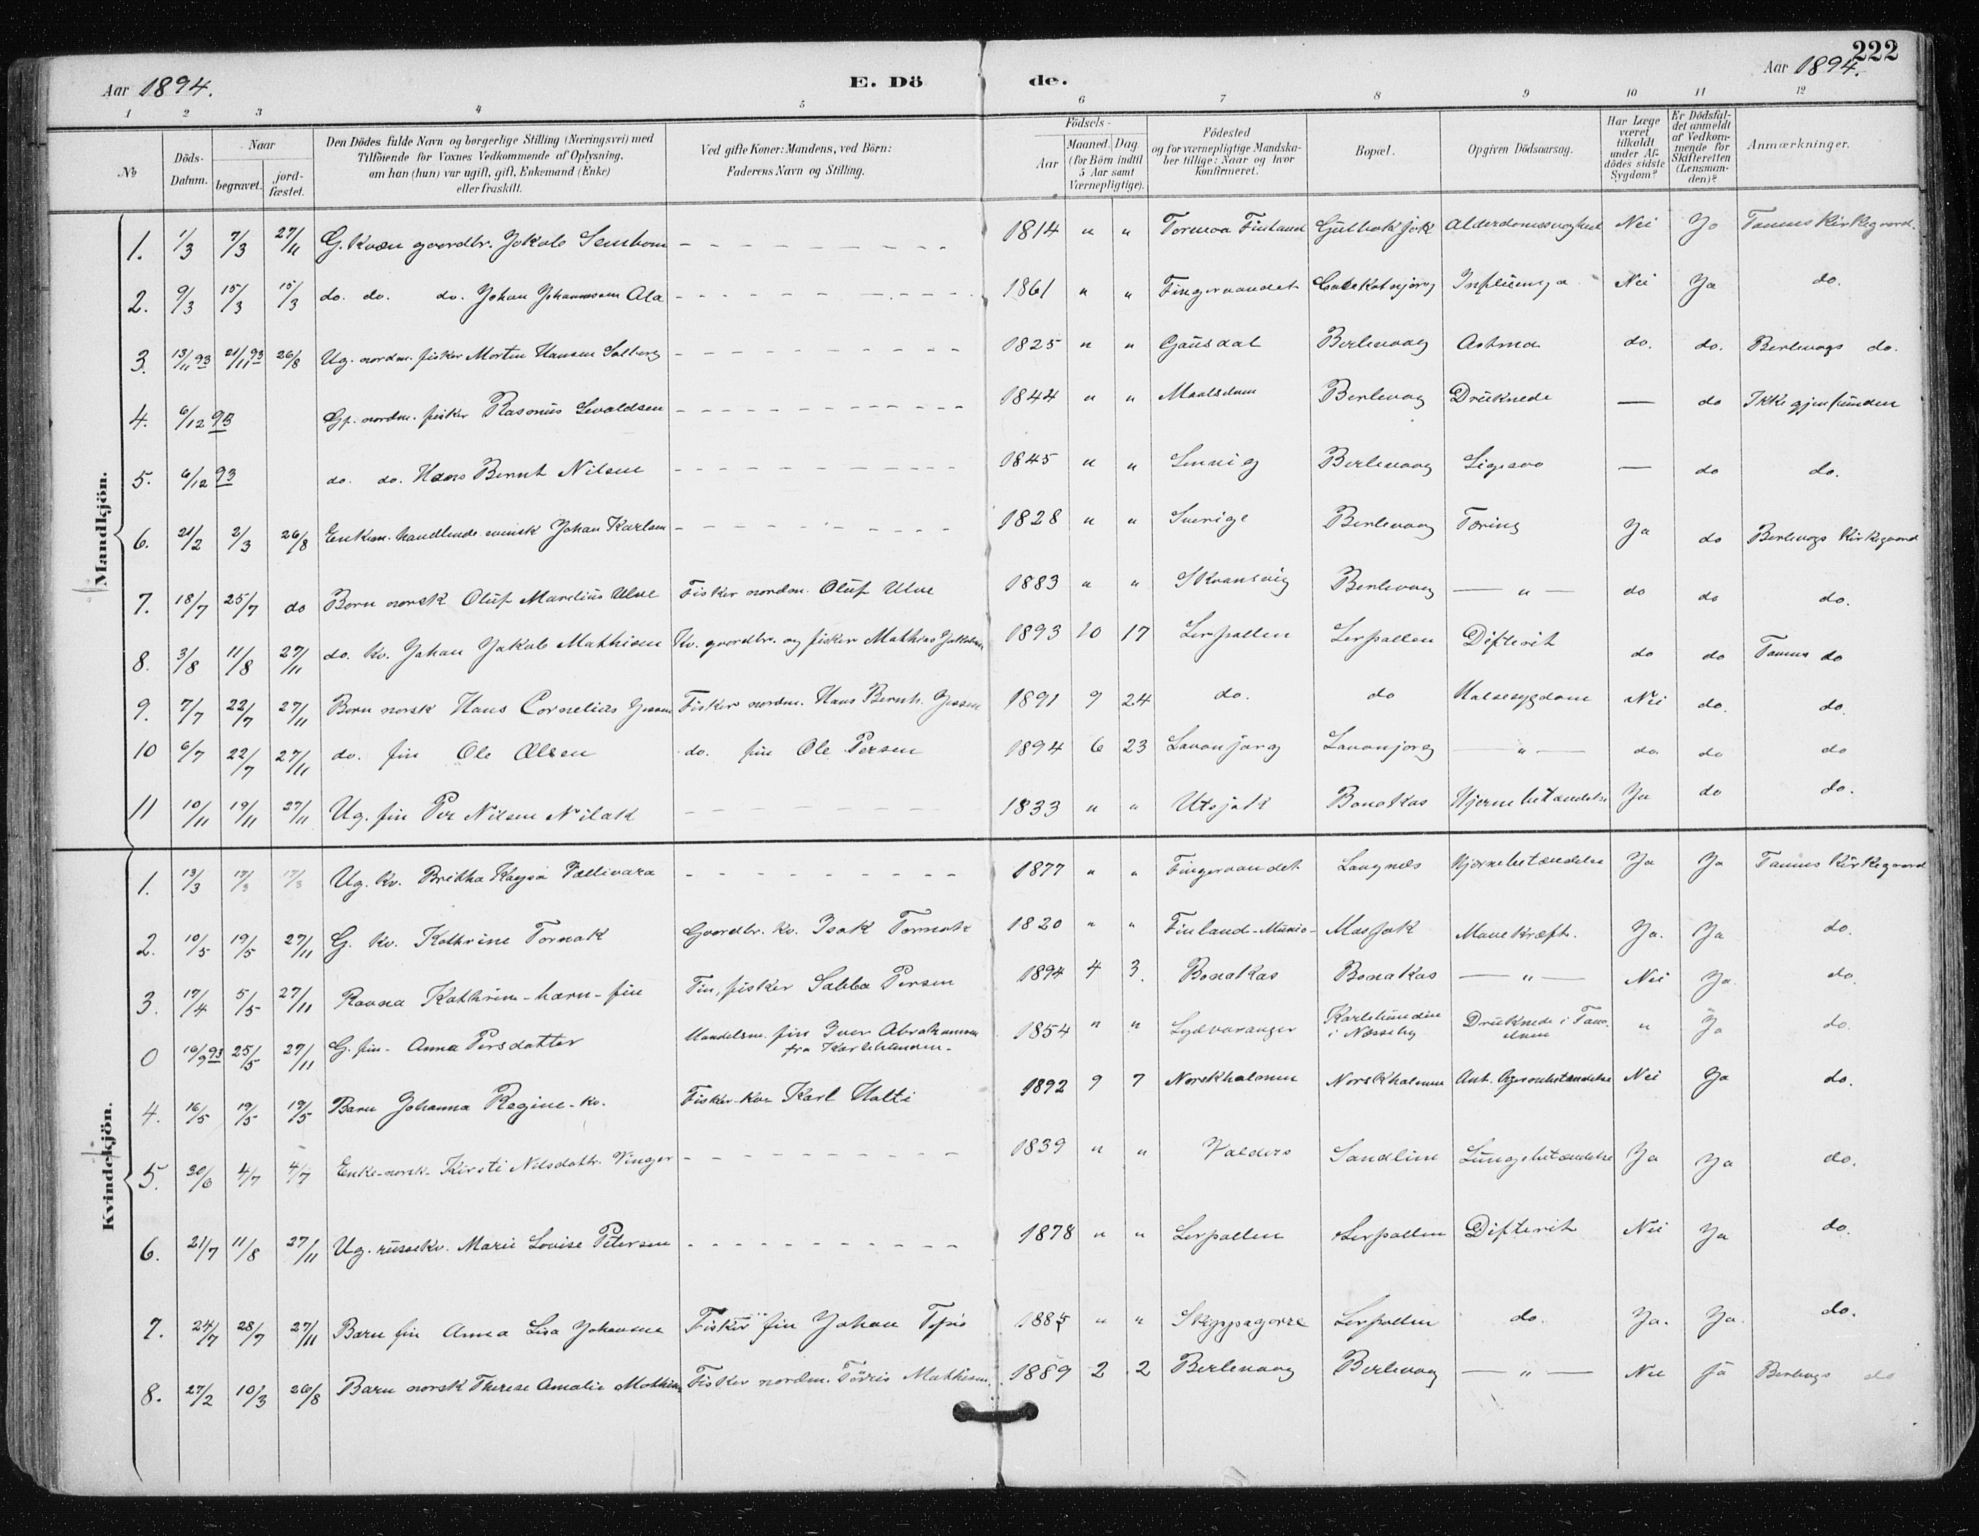 222
Aar 1894.
E. Dö de.
Aar 1894.
1 2 3 4 5 6 7 8 9 10 11 12
No
Döds-Datum.
Naar
begravet.
jord-fæstet.
Den Dödes fulde Navn og borgerlige Stilling (Næringsvei) med
Tilföiende for Voxnes Vedkommende af Oplysning,
om han (hun) var ugift, gift, Enkemand (Enke)
eller fraskilt.
Ved gifte Koner: Mandens, ved Börn:
Faderens Navn og Stilling.
Födsels-
Aar
Maaned. Dag
(for Börn indtil
5 Aar samt
Værnepligtige).
Födested
og for værnepligtige Mandska-
ber tillige: Naar og hvor
konfirmeret.
Bopæl.
Opgiven Dödsaarsag.
Har Læge
været
tilkaldt
under Af-
dödes sidste
Sygdom?
Er Dödsfal-
det anmeldt
af Vedkom-
mende for
Skifteretten
(Lensman-
den)?
Anmærkninger.
Mandkjön.
1. 1/3 7/3 27/11 G. kvæn gaardbr. Jakob 1814 " " Finland Alderdomssvaghed Nei Ja Tanens Kirkegaard.
2. 9/3 15/3 15/3 do. do. do. Johan Johannesen Ala 1861 " " Fingervandet Influensa Nei Ja do.
3. 13/11 93 21/11 93 26/8 Ug. nordm. fisker Morten Hansen Solberg 1825 " " Gausdal Berlevaag Astma do. do. Berlevogs do.
4. 6/12 93 Gf. nordm. fisker Rasmus 1844 " " Berlevaag Druknede — do Ikke gjenfunden
5. 6/12 93 do. do. Hans Bernt Nilsen 1845 " " Berlevaag Ligesaa — do do.
6. 21/2 2/3 26/8 Enkem. handlende svensk Johan Karlsen 1828 " " Sverige Berlevaag Tæring Ja do Berlevogs Kirkegaard
7. 18/7 25/7 do Barn norsk Oluf Marelius Ulve Fisker nordm. Oluf Ulve 1883 " " Berlevaag — " — do do do.
8. 3/8 11/8 27/11 do. kv. Johan Jakob Mathisen Kv. gaardbr. og fisker Mathias 1893 10 17 Lerpollen Lerpollen Difterit do do Tanens do
9. 7/7 22/7 27/11 Barn norsk Hans Cornelius Jessen Fisker nordm. Hans Bernh. Jessen 1891 9 24 do. do Halsesygdom Nei do. do.
10 6/7 22/7 27/11 do. fin Ole Olsen do. fin Ole Persen 1894 6 23 Lavonjorg Lavonjorg — " — do do do
11 10/11 19/11 27/11 Ug. fin Per Nilsen 1833 " " Utsjok Bonakas Hjernebetændelse Ja do do.
Kvindekjön.
1. 13/3 17/3 17/3 Ug. kv. Britha Kaysa 1877 " " Fingervandet Langnæs Hjernebetændelse Ja Ja Tanens Kirkegaard
2. 10/5 19/5 27/11 G. kv. Kathrine Tornak Gaardbr. kv. Isak Tornak 1820 " " Finland-Munio- Masjok Mavekræft. Ja. Ja do.
3. 17/4 5/5 27/11 Ravna Kathrine - barn - fin Fin, fisker Sabba Persen 1894 4 3. Bonakas Bonakas — " — Nei Ja. do.
0 19/9 93 25/5 27/11 G. fin - Anna Persdatter Mandelsm. fin Iver Abrahamsen
fra Karlebunden. 1854 " " Sydvaranger Karlebunden
i Næsseby Druknede i Tana-
elven " Ja do.
4. 16/5 19/5 19/5 Barn Johanna Regine - kv. Fisker kvæn Karl Hotti 1892 9 7 Norskholmen Norskholmen Nei Ja do.
5. 30/6 4/7 4/7 Enke - norsk. Kirsti Nilsdattr. Vinger 1839 " " Valders Sandlien Lungebetændelse Ja Ja do.
6. 21/7 11/8 27/11 Ug. russekv. Marie Lovise Petersen 1878 " " Lerpollen Lerpollen Difterit Nei Ja do.
7. 24/7 28/7 27/11 Barn fin Anna Lisa Johansen Fisker fin Johan 1885 " " Skippagorre Lerpollen do. Ja. Ja. do.
8. 27/2 10/3 26/8 Barn norsk Therese Amalie Mathisen Fisker nordm. Mathisen. 1889 2 2 Berlevaag Berlevaag — " — Nei Ja Berlevogs do